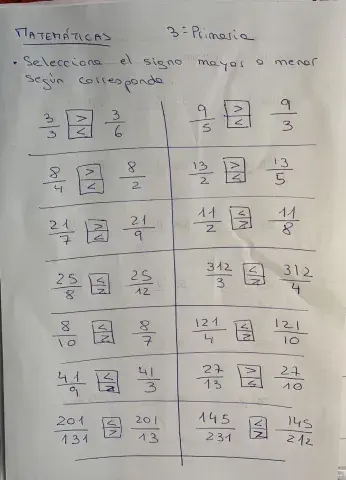 MATEMÁTICAS 3º Primaria
• Selecciona el signo mayor o menor
según corresponda.
3/3 > < 3/6 9/5 > < 9/3
8/4 > < 8/2 13/2 > < 13/5
21/7 > < 21/9 11/2 < > 11/8
25/8 < > 25/12 312/3 < > 312/4
8/10 < > 8/7 121/4 < > 121/10
41/9 < > 41/3 27/13 > < 27/10
201/131 < > 201/13 145/231 < > 145/212